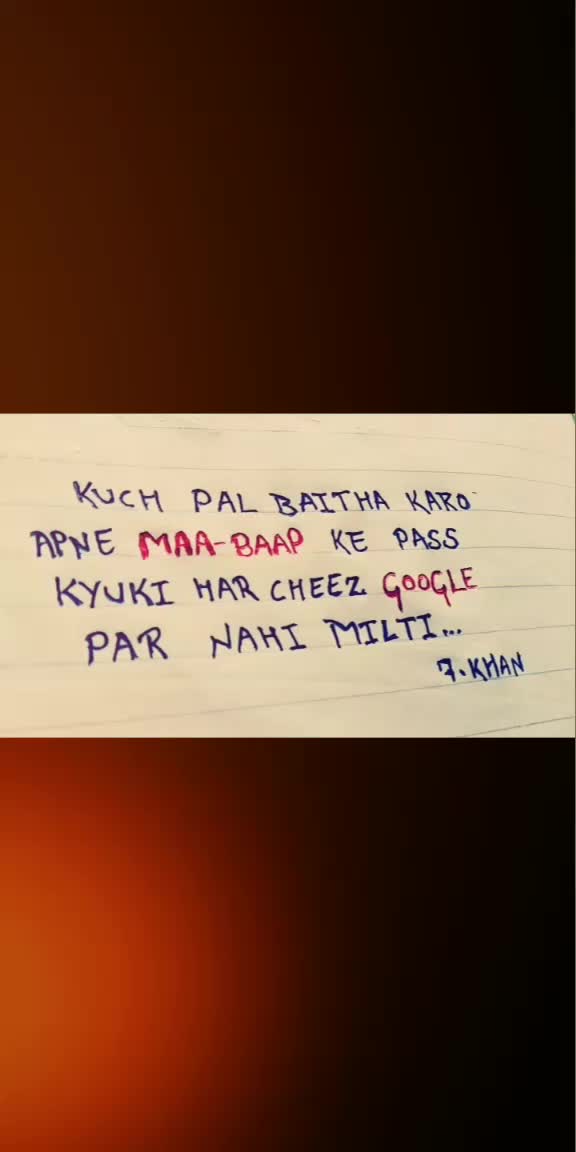 KUCH PAL BAITHA KARO
APNE MAA-BAAP KE PASS
KYUKI HAR CHEEZ GOOGLE
PAR NAHI MILTI...
7.KHAN